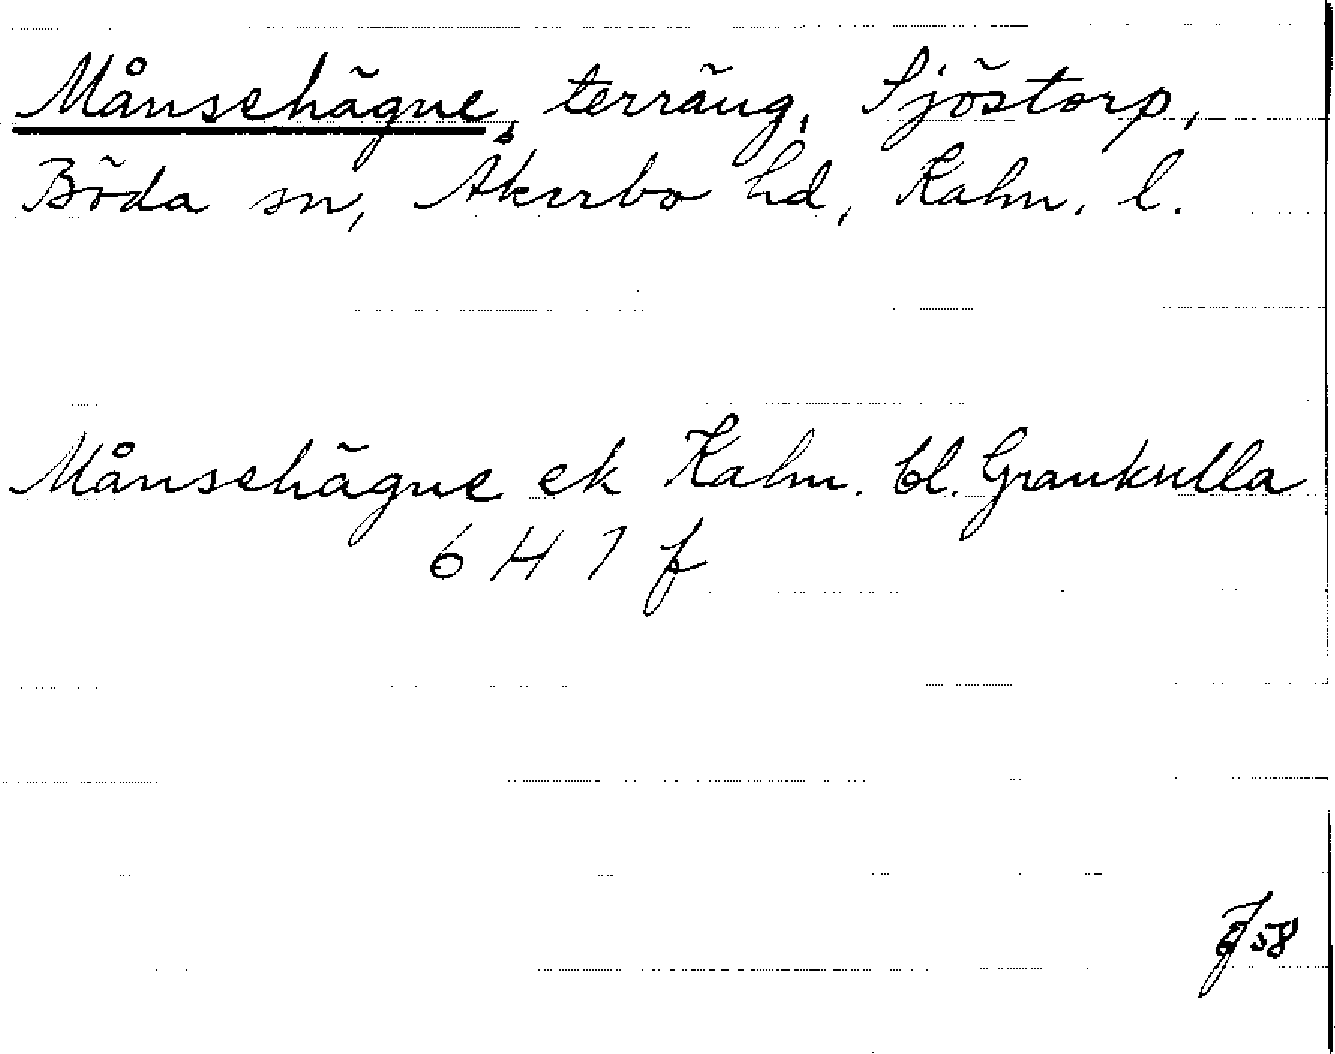 Månsehägne, terräng, Sjöstorp,
Böda sn, Åkerbo hd, Kalm. l.
Månsehägne ek Kalm. bl. Grankulla
6 H 1 f
58